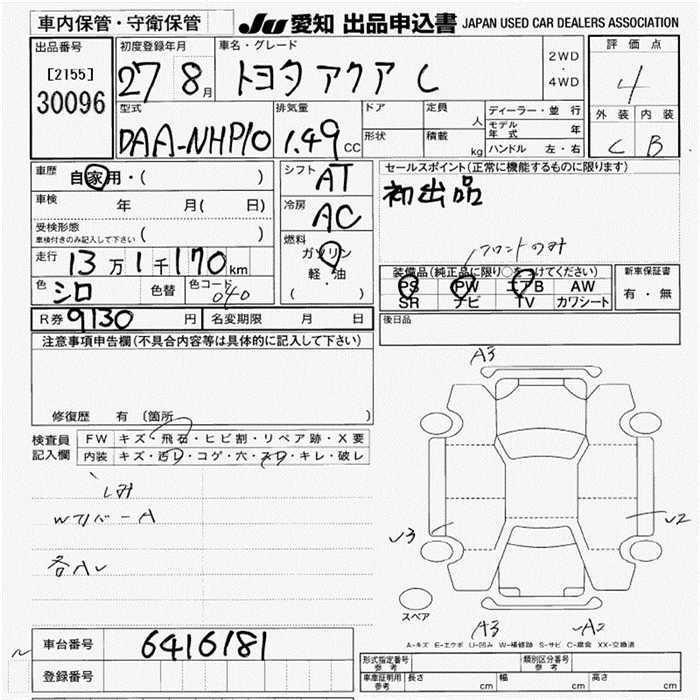 車内保管・守衛保管
JU 愛知 出品申込書 JAPAN USED CAR DEALERS ASSOCIATION
出品番号
[2155]
30096
初度登録年月
27 8月
車名・グレード
トヨタ アクア L
2WD
・
4WD
評価点
4
外装 内装
C B
型式
DAA-NHP10
排気量
1.49 CC
ドア
定員 人
形状
積載 kg
ディーラー・並行
モデル年式 年
ハンドル 左・右
車歴 自家用・( )
車検 年 月( 日)
受検形態
車検付きのみ記入して下さい ( )
走行 13万1千170km
色 シロ 色替 色コード 040
シフト AT
冷房 AC
燃料
ガソリン
軽・油
( )
セールスポイント(正常に機能するものに限ります)
初出品
フロントのみ
装備品(純正品に限り○をつけてください)
PS PW エアB AW
SR ナビ TV カワシート
新車保証書
有・無
R券 9130円 名変期限 月 日
後日品
注意事項申告欄(不具合内容等は具体的に記入して下さい)
修復歴 有〔箇所 〕
検査員
記入欄
FW キズ・飛石・ヒビ割・リペア跡・X要
内装 キズ・汚レ・コゲ・穴・スレ・キレ・破レ
シミ
Wカバー A
各A
A3
v3
v2
スペア
A3
A2
A-キズ E-エクボ U-凹み W-補修跡 S-サビ C-腐食 XX-交換済
車台番号 6416181
登録番号
形式指定番号
参考
類別区分番号
参考
車庫証明用
参考
長さ cm 幅 cm 高さ cm